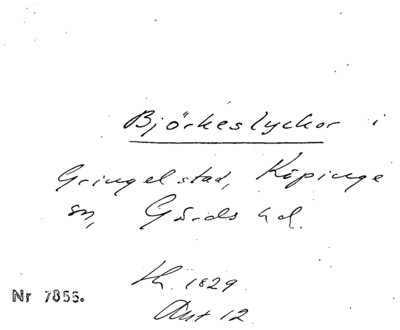 Björkeslyckor i
Gringelstad, Köpinge
sn, Gärds hd.
Lh. 1829
Akt 12
Nr 7855.